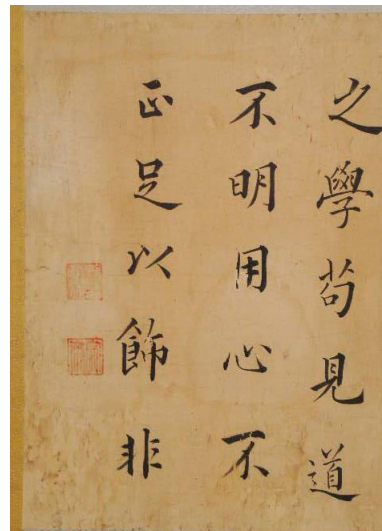 之學苟見道
不明用心不
正足以飾非